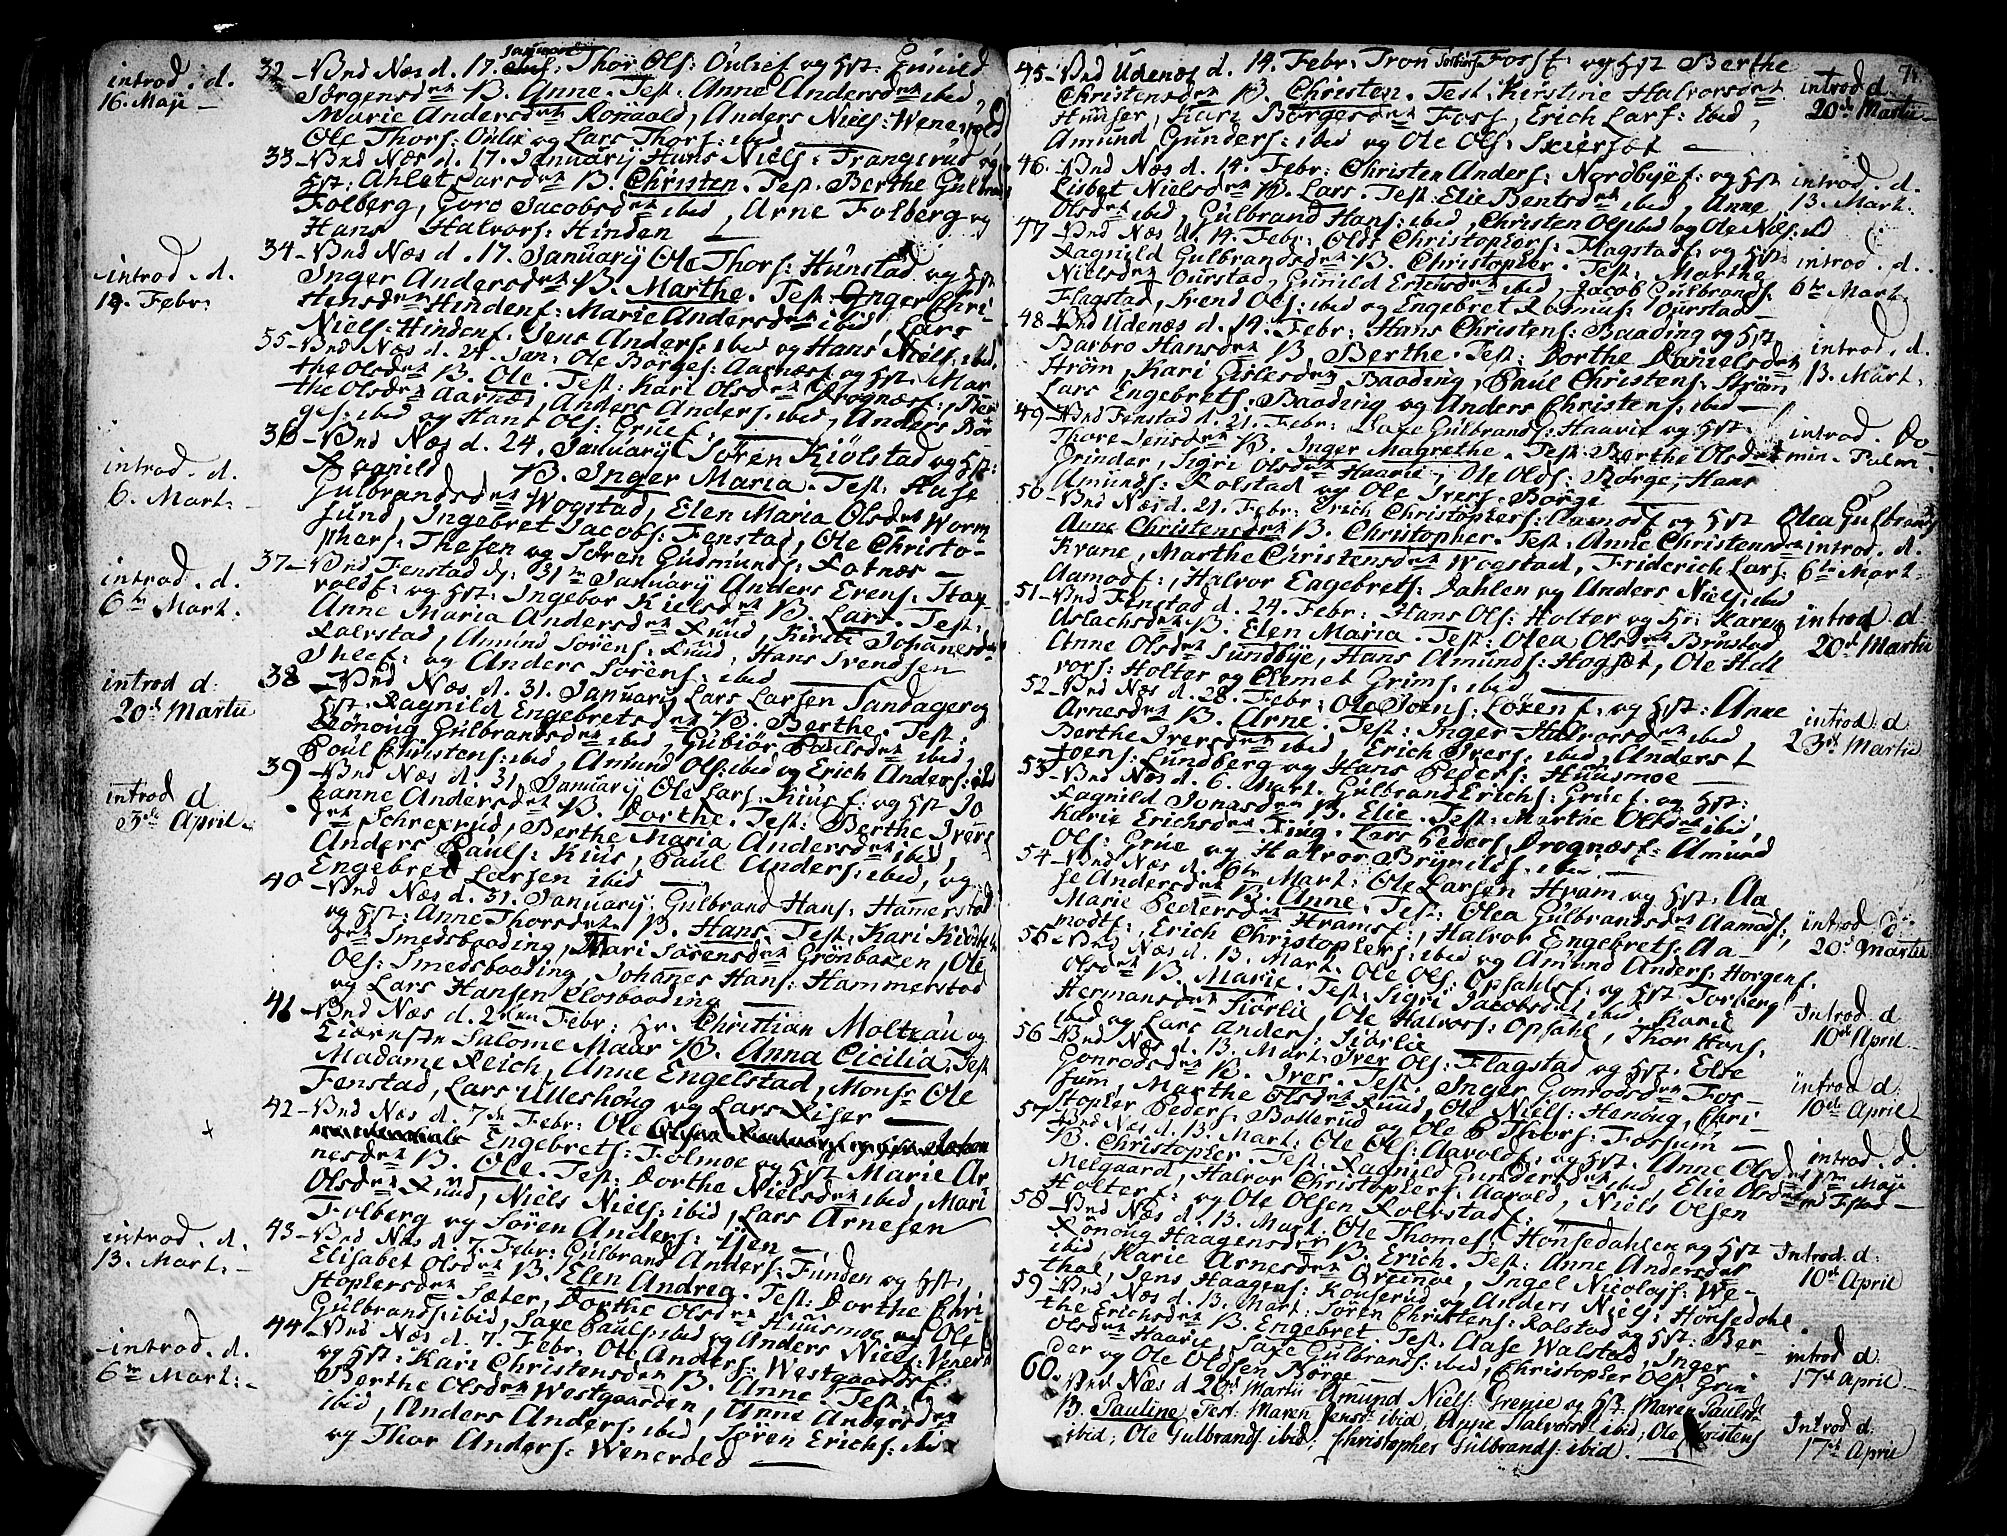 introd. d.
16. Maji
32 - Bnd Næs d. 17. January Thor Ols: Oulie f og Hst: Gunild
Jørgensdtr B. Anne. Test: Anne Andersdtr ibid,
Marie Andersdtr Romaald, Anders Niels: Wenevold
Ole Thors: Oulie og Lars Thors: ibid
33 - Bnd Næs d. 17. January Hans Niels: Trangerud og
Hst: Ahlet Larsdtr B. Christen. Test. Berthe Gulbrands
Folberg, Goro Jacobsdtr ibid, Arne Folberg og
Hans Halvors: Hinden
introd. d.
14. Febr:
34 - Bnd Næs d. 17. January Ole Thors: Hunstad og Hst
Inger Andersdtr B. Marthe. Test. Inger Chri-
stensdtr Hinden f: Marie Andersdtr ibid, Lars
Niels: Hinden f. Jens Anders: ibid og Hans Niels: ibid
35 - Bnd Næs d. 24. Jan: Ole Börges: Aarnæs f og Hst: Mar-
the Olsdtr B. Ole. Test: Kari Olsdtr Drognæs f:, Ber-
the Olsdtr Aarnæs, Anders Anders: ibid, Anders Bör-
ges: ibid og Hans Ols: Grue f:
introd. d.
6. Mart:
36 - Bnd Næs d. 24. January Sören Kiölstad og Hst:
Ragnild B. Inger Maria. Test: Aase
Gulbrandsdtr Wogstad, Elen Maria Olsdtr Worm
sund, Ingebret Jacobs: Fenstad, Ole Christo-
phers: Thesen og Sören Gudmunds: Rotnæs
introd. d.
6te Mart.
37 - Bnd Fenstad d: 31te January Anders Erens: Hax-
vold f: og Hst: Ingebor Kielsdtr B. Lars. Test:
Anne Maria Andersdtr Ruud, Kirsti Johanesdtr
Rolvstad, Amund Sörens: Ruud, Hans Svendsen
Ihle f: og Anders Sörens: ibid
introd d:
20de Martii
38 - Bnd Næs d. 31. January Lars Larsen Sandager og
Hst: Ragnild Engebretsdtr B. Berthe. Test:
Rönoug Gulbrandsdtr ibid, Gubiör Paulsdtr ibid,
Poul Christens: ibid, Amund Ols: ibid og Erich Anders: ibid
introd d
3die April
39 - Bnd Næs d. 31. January Ole Lars: Kius f: og Hst Jo
hanne Andersdtr B. Dorthe. Test: Berthe Ivers
dtr Schrexrud, Berthe Maria Andersdtr ibid,
Anders Pauls: Kius, Paul Anders: ibid, og
Engebret Larsen ibid
40 - Bnd Næs d. 31. January: Gulbrand Hans: Hamerstad
og Hst: Anne Thorsdtr B. Hans. Test: Kari
dtr Smedsbaading, Mari Sörensdtr Grönbaken, Ole
Ols: Smedsbaading, Johanes Hans: Hammerstad
og Lars Hansen Closbaading
41 - Bnd Næs d. 2den Febr: Hr. Christian Moltzau og
Kiæreste Salome Maar B. Anna Cicilia, Test
Madame Reich, Anne Engelstad, Monsr Ole
Fenstad, Lars Ulleshoug og Lars Riser
+
42 - Bnd Næs d. 7de Febr: Ole
Engebrets: Folmoe og Hst Marie Ar
nesdtr B. Ole. Test: Dorthe Nielsdtr ibid, Mari
Olsdtr Ruud, Niels Niels: ibid, Lars Arnesen
Folberg og Sören Anders: Ijen
introd. d.
13. Mart:
43 - Bnd Næs d. 7. Febr: Gulbrand Anders: Funden og Hst,
Elisabet Olsdtr B. Elen Andrea. Test: Dorthe Chri-
stophersdtr Sæter, Dorthe Olsdtr Huusmoe og Ole
Gulbrands: ibid, Saxe Pauls: ibid og Anders Niels: Wenevold
introd. d.
6te Mart:
44 - Bnd Næs d. 7. Febr. Ole Anders: Westgaards f.
og Hst: Kari Christensdtr B. Anne. Test:
Berthe Olsdtr Westgaarden, Anne Andersdtr
ibid, Anders Anders: ibid, Sören Erichs: ibid
og Thor Anders: Wenevold
45 - Bnd Udenæs d. 14. Febr. Tron Torbörs: Foss f. og Hst Berthe
Christensdtr B. Christen. Test. Kirstine Halvorsdtr
Huuser, Kari Börgesdtr Foss, Erich Lars: ibid,
Amund Gunders: ibid og Ole Ols: Skiersæt
introd d.
20de Martii
46. - Bnd Næs d. 14. Febr: Christen Anders: Nordbye f: og Hst
Lisbet Nielsdtr B. Lars. Test: Elie Bentsdtr ibid, Anne
Olsdtr ibid, Gulbrand Hans: ibid, Christen Ols ibid og Ole Niels: ibid
introd. d.
13. Mart.
47 - Bnd Næs d. 14. Febr: Ole Christophers: Flagstad f: og Hst
Ragnild Gulbrandsdtr B. Christopher. Test: Marthe
Nielsdtr Ourstad, Gunild Erichsdtr ibid, Jacob Gulbrands.
Flagstad, Svend Ols: ibid og Engebret Rasmus: Ourstad
introd. d.
6te Mart.
48 - Bnd Udenæs d. 14. Febr: Hans Christens: Baading og Hst
Barbro Hansdtr B. Berthe. Test: Dorthe Danielsdtr
Ström, Kari Gislesdtr Baading, Paul Christens: Ström
Lars Engebrets: Baading og Anders Christens: ibid
introd. d.
13. Mart.
49 - Bnd Fenstad d. 21. Febr: Saxe Gulbrands: Haavie og Hst
Thore Jensdtr B. Inger Magrethe. Test: Berthe Olsdtr
Grinder, Sigri Olsdtr Haavie, Ole Olds: Börge, Hans
Amunds: Rolstad og Ole Ivers: Börge
introd. Do-
min. Palm.
50 - Bnd Næs d. 21. Febr: Erich Christophers: Aamods f og Hst
Anne Christensdtr B. Christopher. Test: Anne Christensdtr
Krane, Marthe Christensdtr Wogstad, Friderich Lars:
Aamods f:, Halvor Engebrets: Dahlen og Anders Niels: ibid
Olea Gulbrands
introd. d.
6te Mart:
51 - Bnd Fenstad d. 24. Febr: Hans Ols: Holter og Hst: Karen
Aslachsdtr B. Elen Maria. Test: Olea Olsdtr Brustad,
Anne Olsdtr Sundbye, Hans Amunds: Hogset, Ole Hal
vors: Holter og Clemet Grims: ibid
introd d:
20de Martii
52 - Bnd Næs d. 28. Febr: Ole Joens: Löken f: og Hst: Anne
Arnesdtr B. Arne. Test: Inger Halvorsdtr ibid
Berthe Iversdtr ibid, Erich Ivers: ibid, Anders
Joens: Lundberg og Hans Peders: Huusmoe
introd: d
23de Martii
53 - Bnd Næs d. 6. Mart. Gulbrand Erichs: Grue f. og Hst:
Ragnild Jonasdtr B. Elie. Test: Marthe Olsdtr ibid,
Karie Erichsdtr Ring, Lars Peders: Drognæs f: Amund
Ols: Grue og Halvor Brynilds: ibid
54 - Bnd Næs d. 6te Mart: Ole Larsen Hvam og Hst: Aa
se Andersdtr B. Anne. Test: Olea Gulbrandsdtr Aamods f:,
Marie Pedersdtr Hvams f:, Halvor Engebrets: Aa-
modt f:, Erich Christophers: ibid og Amund Anders: Horgen f.
introd d:
20de Martii
55 - Bnd Næs d. 13. Mart. Ole Ols: Opsahls f: og Hst Torberg
Olsdtr B. Marie. Test: Sigri Jacobsdtr ibid, Karie
Hermansdtr Siörlie, Ole Halvors: Opsahl, Thor Hans:
ibid og Lars Anders: Siörlie
Introd. d
10de April
56 - Bnd Næs d. 13. Mart: Iver Ols: Flagstad og Hst. Else
Gonrodsdtr B. Iver. Test. Inger Gonrodsdtr Fos-
sum, Marthe Olsdtr Ruud, Ole Niels: Henoug, Chri-
stopher Peders: Bollerud og Ole Thors: Fossum
introd d:
10de April
57 - Bnd Næs d. 13. Mart: Ole Ols: Aavold f: og Hst. Anne Olsdtr
B. Christopher. Test. Ragnild Gundersdtr ibid, Elie Olsdtr
Melgaard, Halvor Christophers: Aavold, Niels Olsen
Holter f: og Ole Olsen Rolvstad f:
introd. d.
1ste Maji
58 - Bnd Næs d. 13. Mart. Ole Thomes: Hönsedahlen og Hst
Rönoug Haagensdtr B. Erich. Test: Anne Andersdtr
ibid, Karie Arnesdtr Greinoe, Ingel Nicolays: We-
thal, Jens Haagens: Konserud og Anders Niels: Hönsedahl
Introd. d:
10de April
59 - Bnd Næs d. 13. Mart: Sören Christens: Rolstad og Hst: Ber-
the Erichsdtr B. Engebret. Test. Aase Walstad, Inger
Olsdtr Haavie, Saxe Gulbrands: ibid, Christopher Ols: Grin
der og Ole Oldsen Börge
introd d:
17de April
60. - Bnd Næs d 20de Martii Amund Niels: Grenie og Hst. Maren Paulsd
B. Pauline Test: Maren Jensd ibid, Anne Halvorsd ibid, Ole Christens
ibid, Ole Gulbrands ibid, Christopher Gulbrands: ibid.
Introd d:
17de April